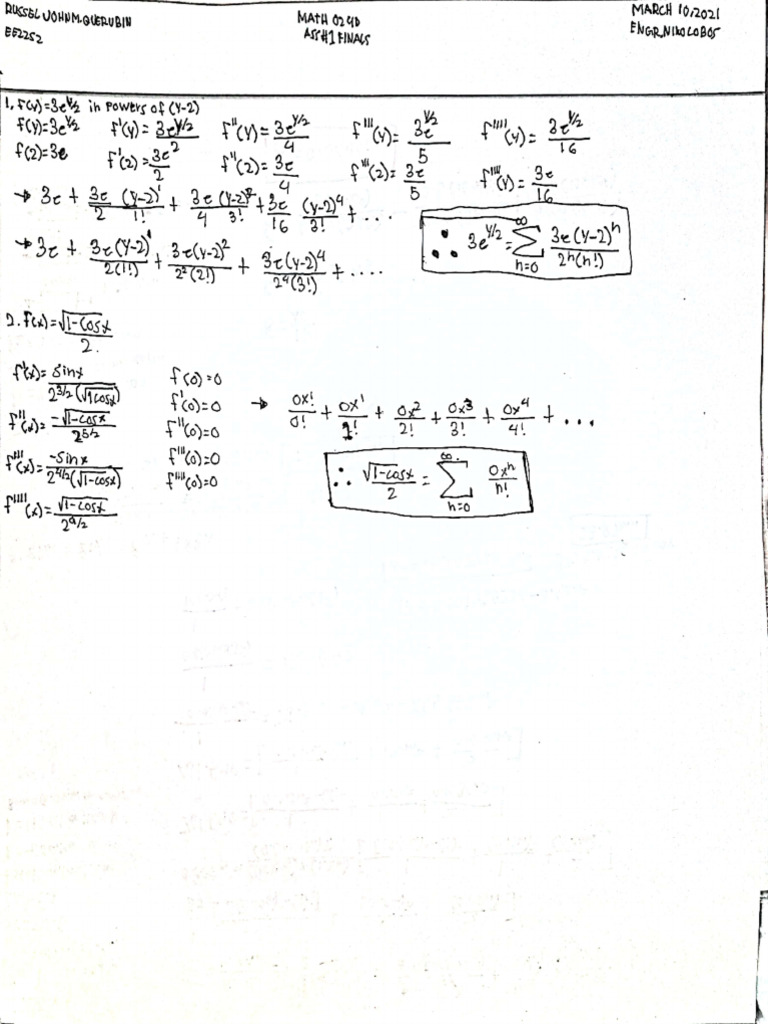 RUSSEL JOHN M. QUERUBIN MATH 024D MARCH 10, 2021
EE2252 ASSH1 FINALS ENGR. NIKO LOBOS
1. F(y)=3e^{y/2} in Powers of (y-2)
f(y)=3e^{y/2} f'(y)=3e^{y/2}/2 f''(y)=3e^{y/2}/4 f'''(y)=3e^{y/2}/5 f''''(y)=3e^{y/2}/16
f(2)=3e f'(2)=3e^2/2 f''(2)=3e/4 f'''(2)=3e/5 f''''(y)=3e/16
→ 3e + 3e/2 (y-2)^1/1! + 3e/4 (y-2)^2/3! + 3e/16 (y-2)^4/3! + ....
→ 3e + 3e(y-2)^1/2(1!) + 3e(y-2)^2/2^2(2!) + 3e(y-2)^4/2^4(3!) + ....
∴ 3e^{y/2} = ∞ ∑ n=0 3e(y-2)^n/2^n(n!)
2. F(x)=√1-cosx/2.
f'(x)=sinx/2^{3/2}(√1cosx) f(0)=0
f''(x)=-√1-cosx/2^{5/2} f'(0)=0
f'''(x)=-sinx/2^{4/2}(√1-cosx) f''(0)=0
f''''(x)=√1-cosx/2^{9/2} f'''(0)=0
f''''(0)=0
→ 0x!/0! + 0x^1/1! + 0x^2/2! + 0x^3/3! + 0x^4/4! + ...
∴ √1-cosx/2 = ∞ ∑ n=0 0x^n/n!